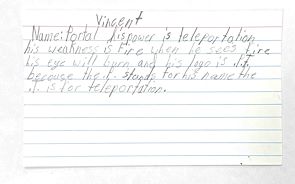 Vincent
Name: Portal his power is teleportation
his weakness is fire when he sees fire
his eye will burn and his logo is .t.
because the . stands for his name the
.t. is for teleportation.